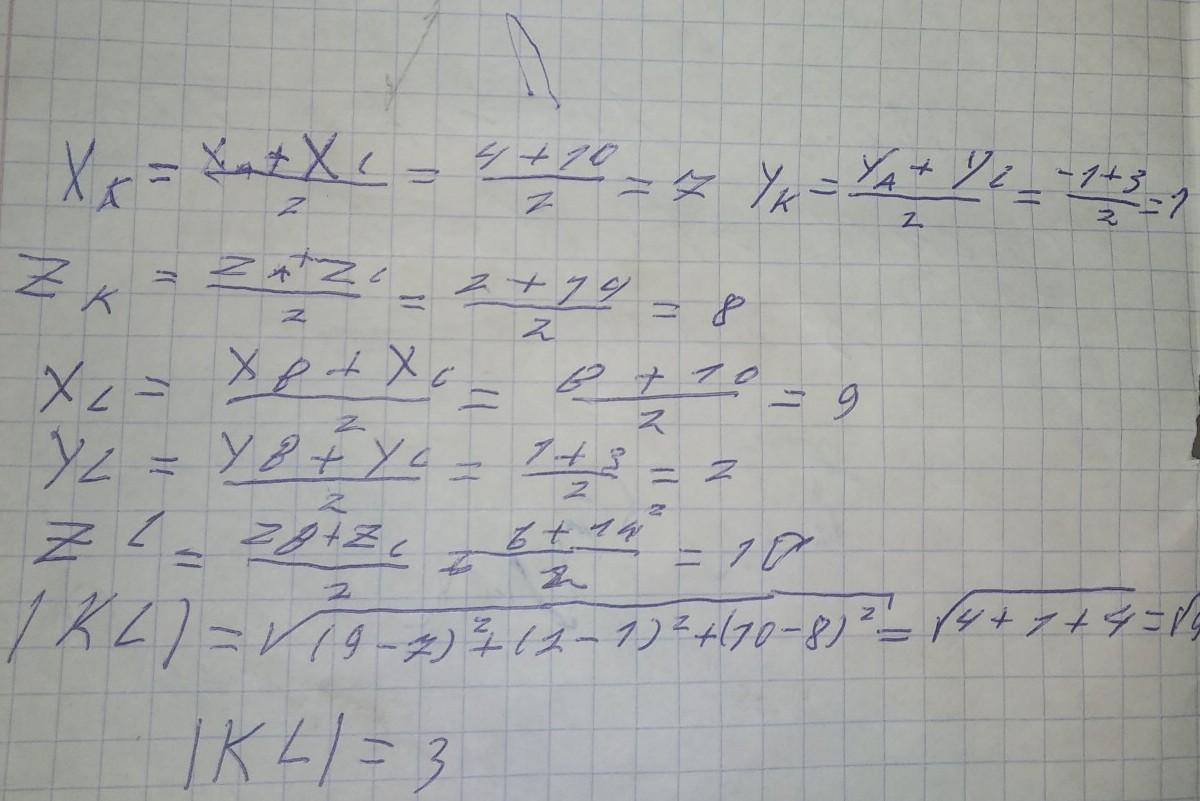 X_K = (X_A + X_C)/2 = (4 + 10)/2 = 7 Y_K = (Y_A + Y_C)/2 = (-1 + 3)/2 = 1
Z_K = (Z_A + Z_C)/2 = (2 + 14)/2 = 8
X_L = (X_B + X_C)/2 = (8 + 10)/2 = 9
Y_L = (Y_B + Y_C)/2 = (1 + 3)/2 = 2
Z_L = (Z_B + Z_C)/2 = (6 + 14)/2 = 10
|KL| = √((9 - 7)² + (2 - 1)² + (10 - 8)²) = √(4 + 1 + 4) = √9
|KL| = 3